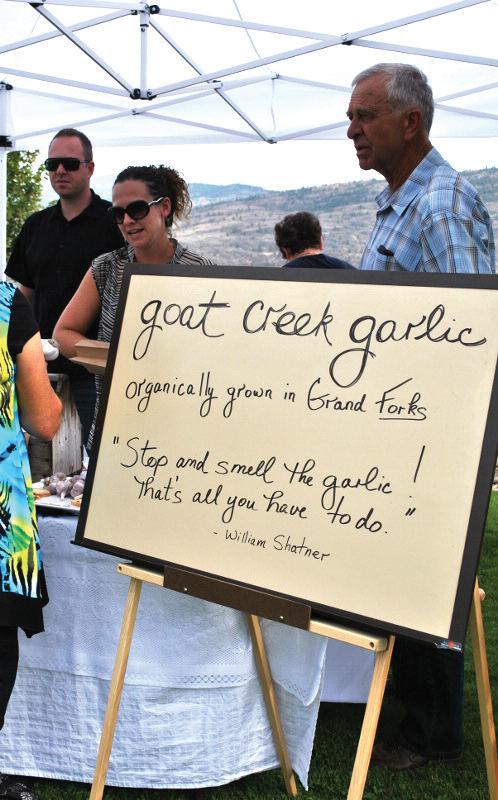 goat creek garlic
organically grown in Grand Forks
"Stop and smell the garlic!
That's all you have to do."
- William Shatner